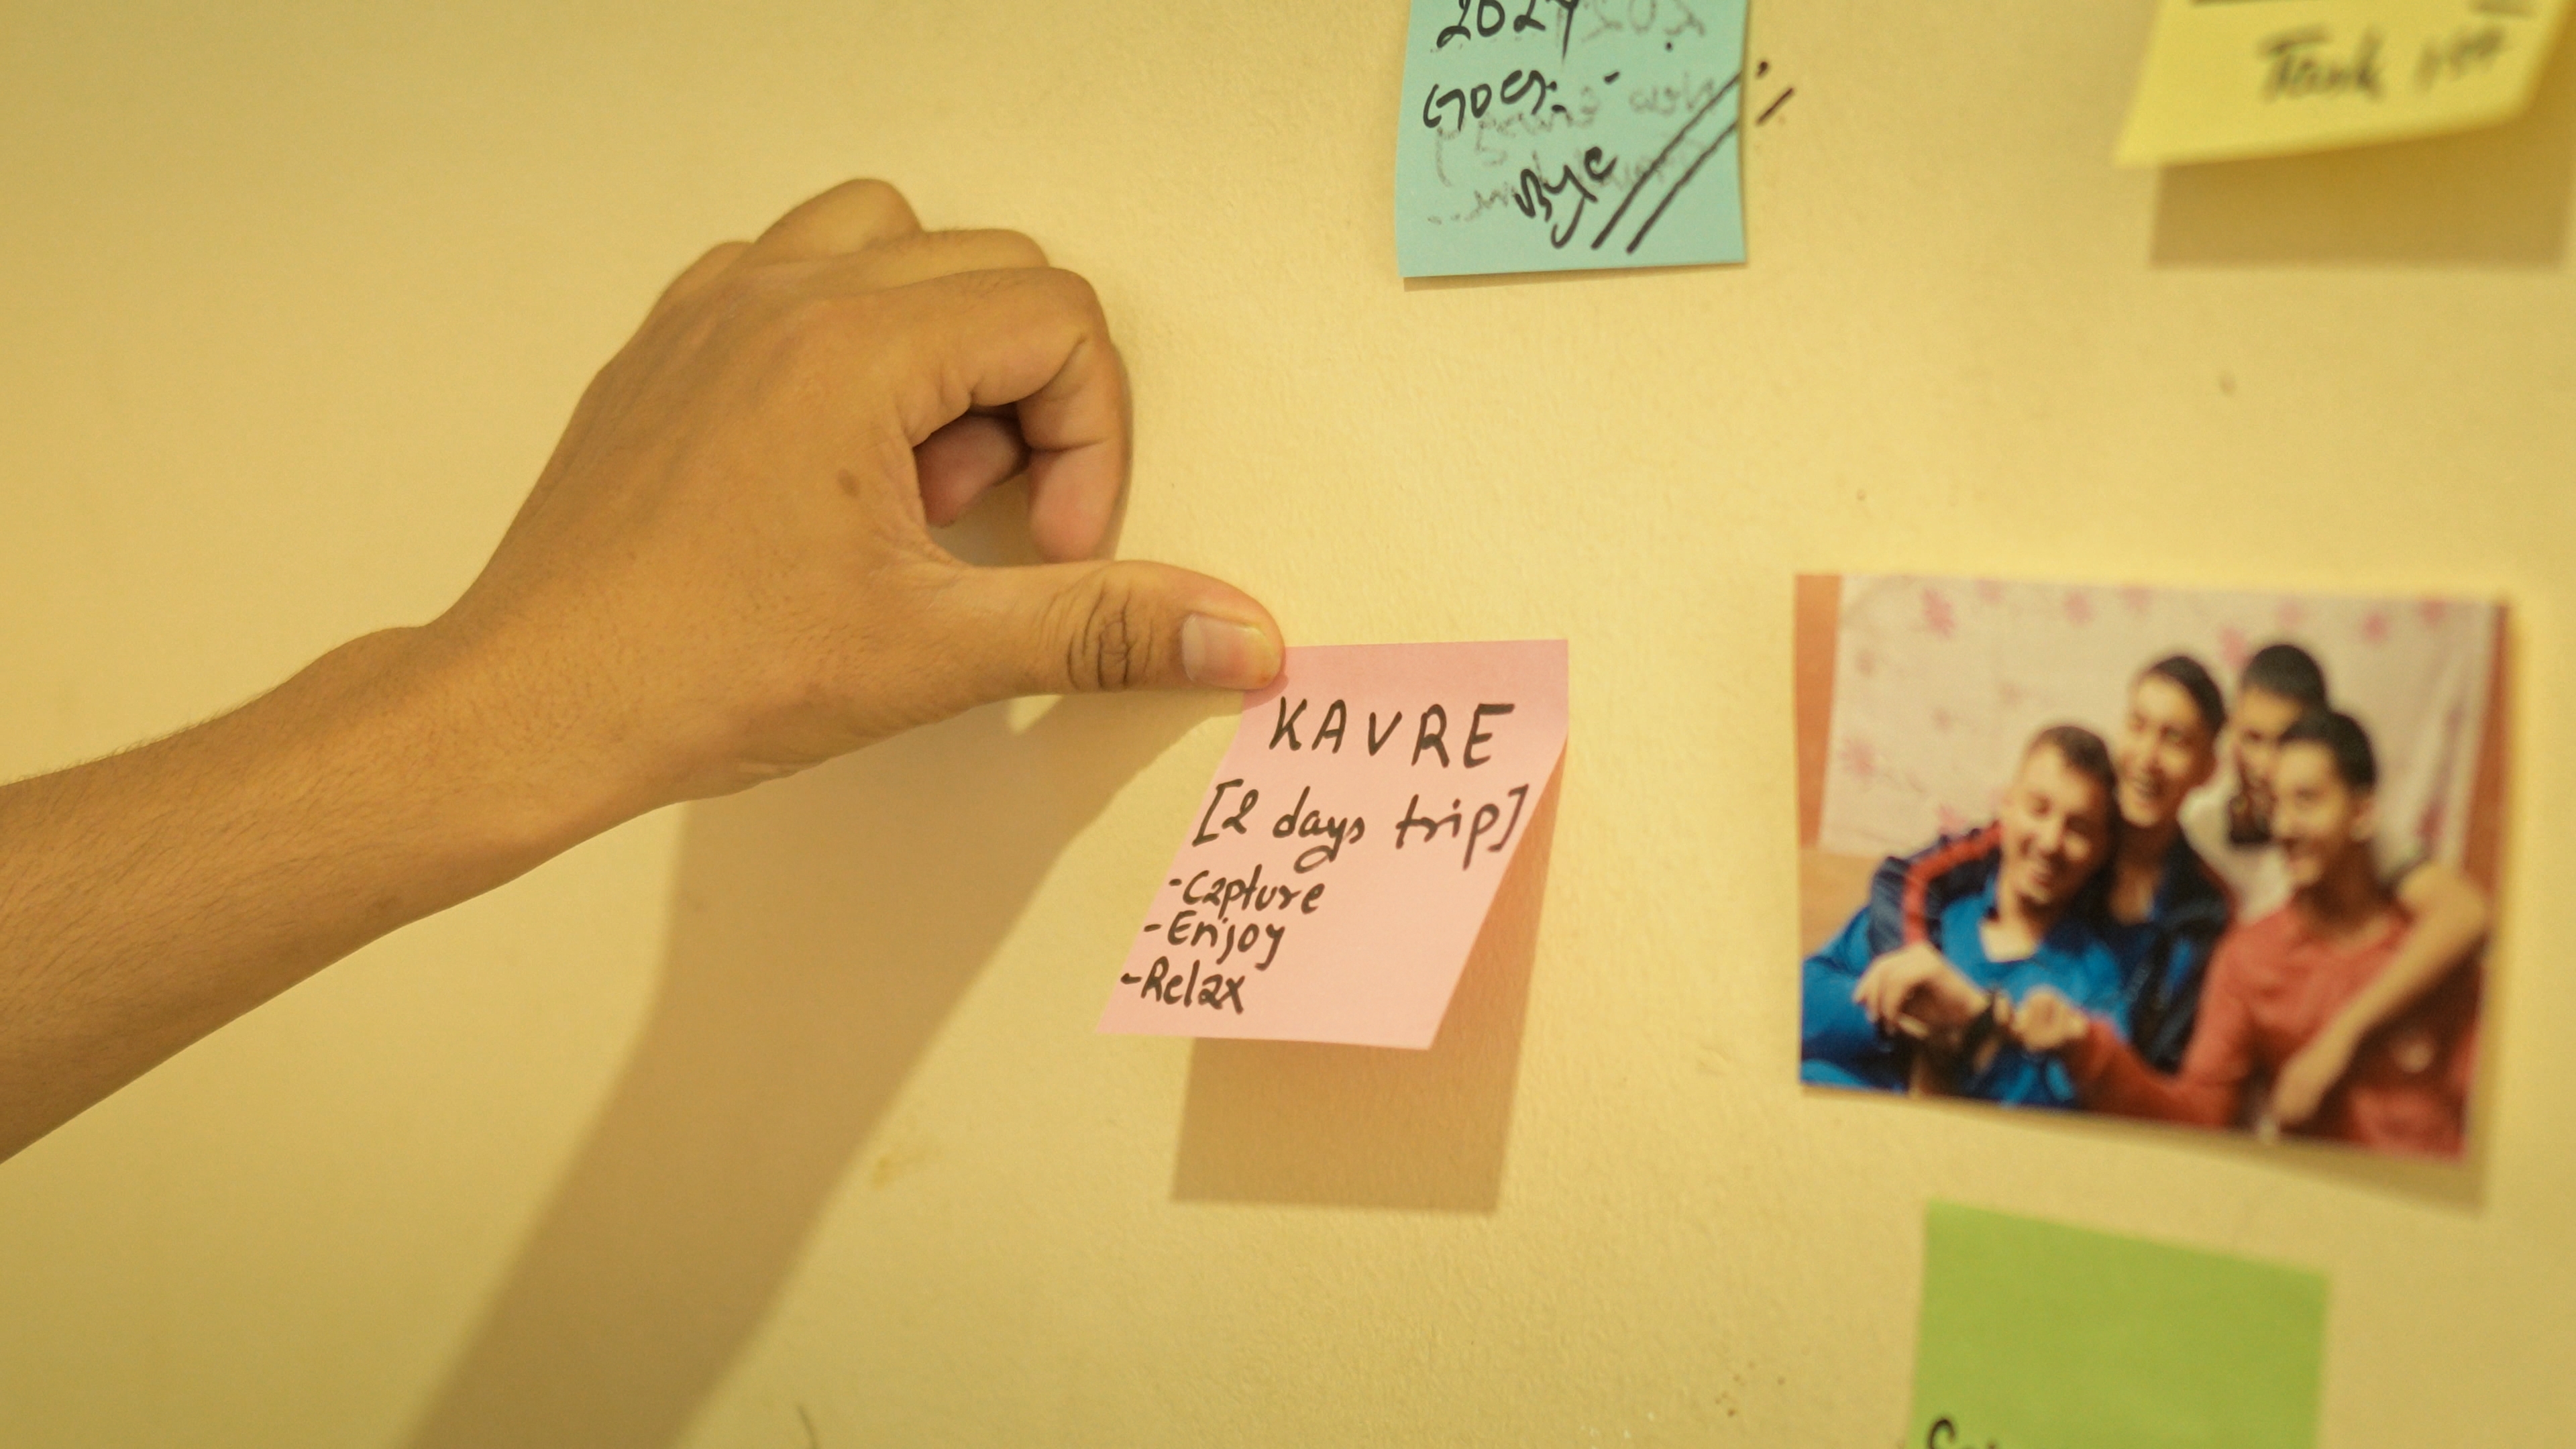 2024
Goes:-
Bye
Task
KAVRE
[2 days trip]
-Capture
-Enjoy
-Relax